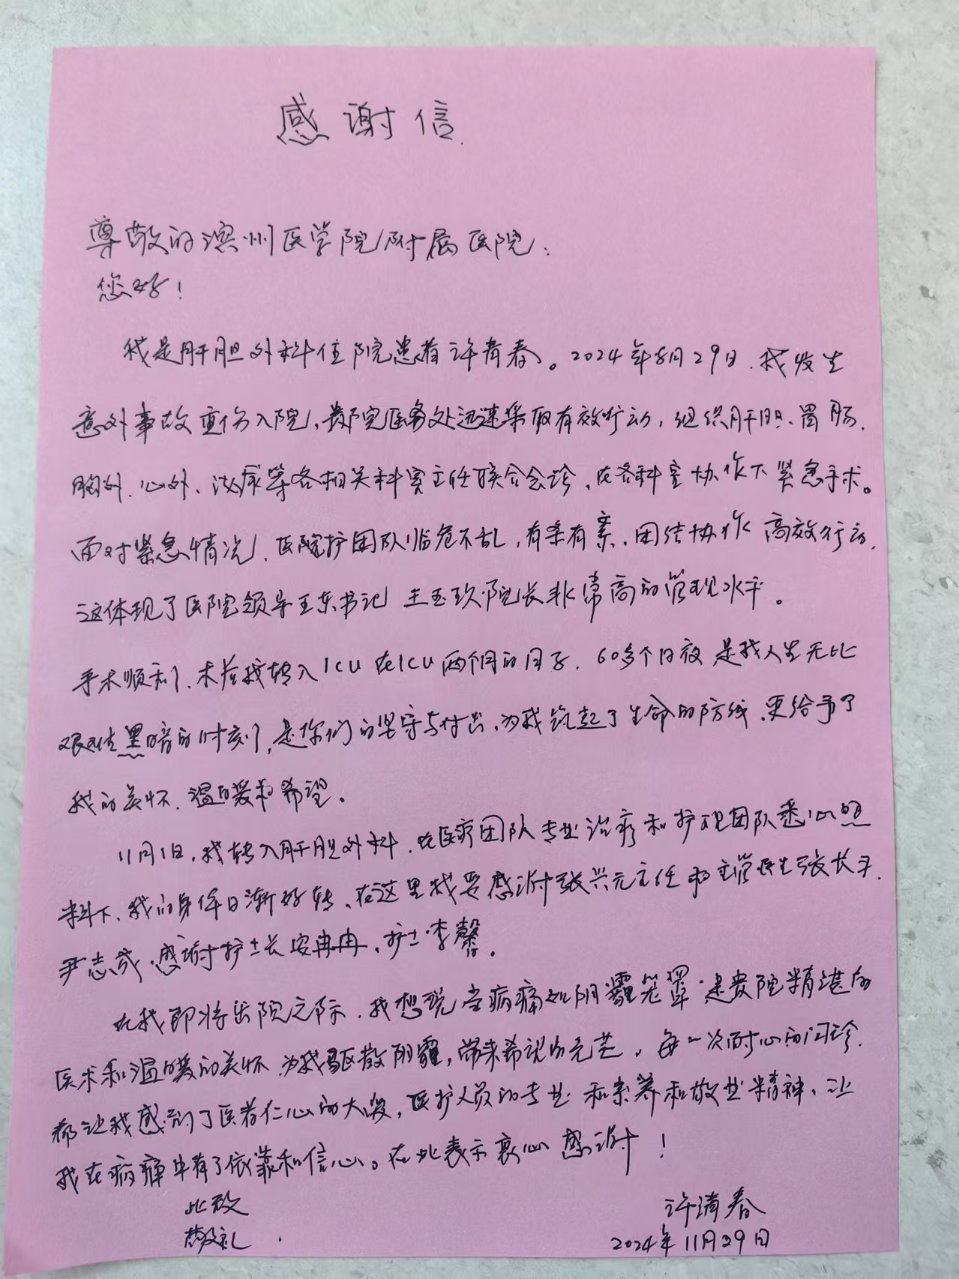 感谢信
尊敬的滨州医学院附属医院：
您好！
我是肝胆外科住院患者许青春。2024年8月29日，我发生
意外事故重伤入院，贵院医务处迅速采取有效行动，组织肝胆、胃肠、
胸外、心外、泌尿等各相关科室主任联合会诊，在各科室协作下紧急手术。
面对紧急情况，医院护团队临危不乱，有条有素，团结协作 高效行动，
这体现了医院领导王东书记 王玉玖院长非常高的管理水平。
手术顺利，术后我转入ICU 在ICU两个月的日子，60多个日夜 是我人生无比
艰难黑暗的时刻，是你们的坚守与付出，为我筑起了生命的防线，更给予了
我的关怀、温暖和希望。
11月1日，我转入肝胆外科，在医疗团队专业治疗和护理团队悉心照
料下，我的身体日渐好转、在这里我要感谢张兴元主任 主管医生张长平、
尹志成，感谢护士长安冉冉，护士李馨。
在我即将出院之际，我想说 当病痛如阴霾笼罩，是贵院精湛的
医术和温暖的关怀，为我驱散阴霾，带来希望的光芒，每一次耐心的问诊，
都让我感到了医者仁心的大爱，医护人员的专业 和素养和敬业精神，让
我在病痛中有了依靠和信心。在此表示衷心感谢！
此致 许清春
敬礼 2024年11月29日